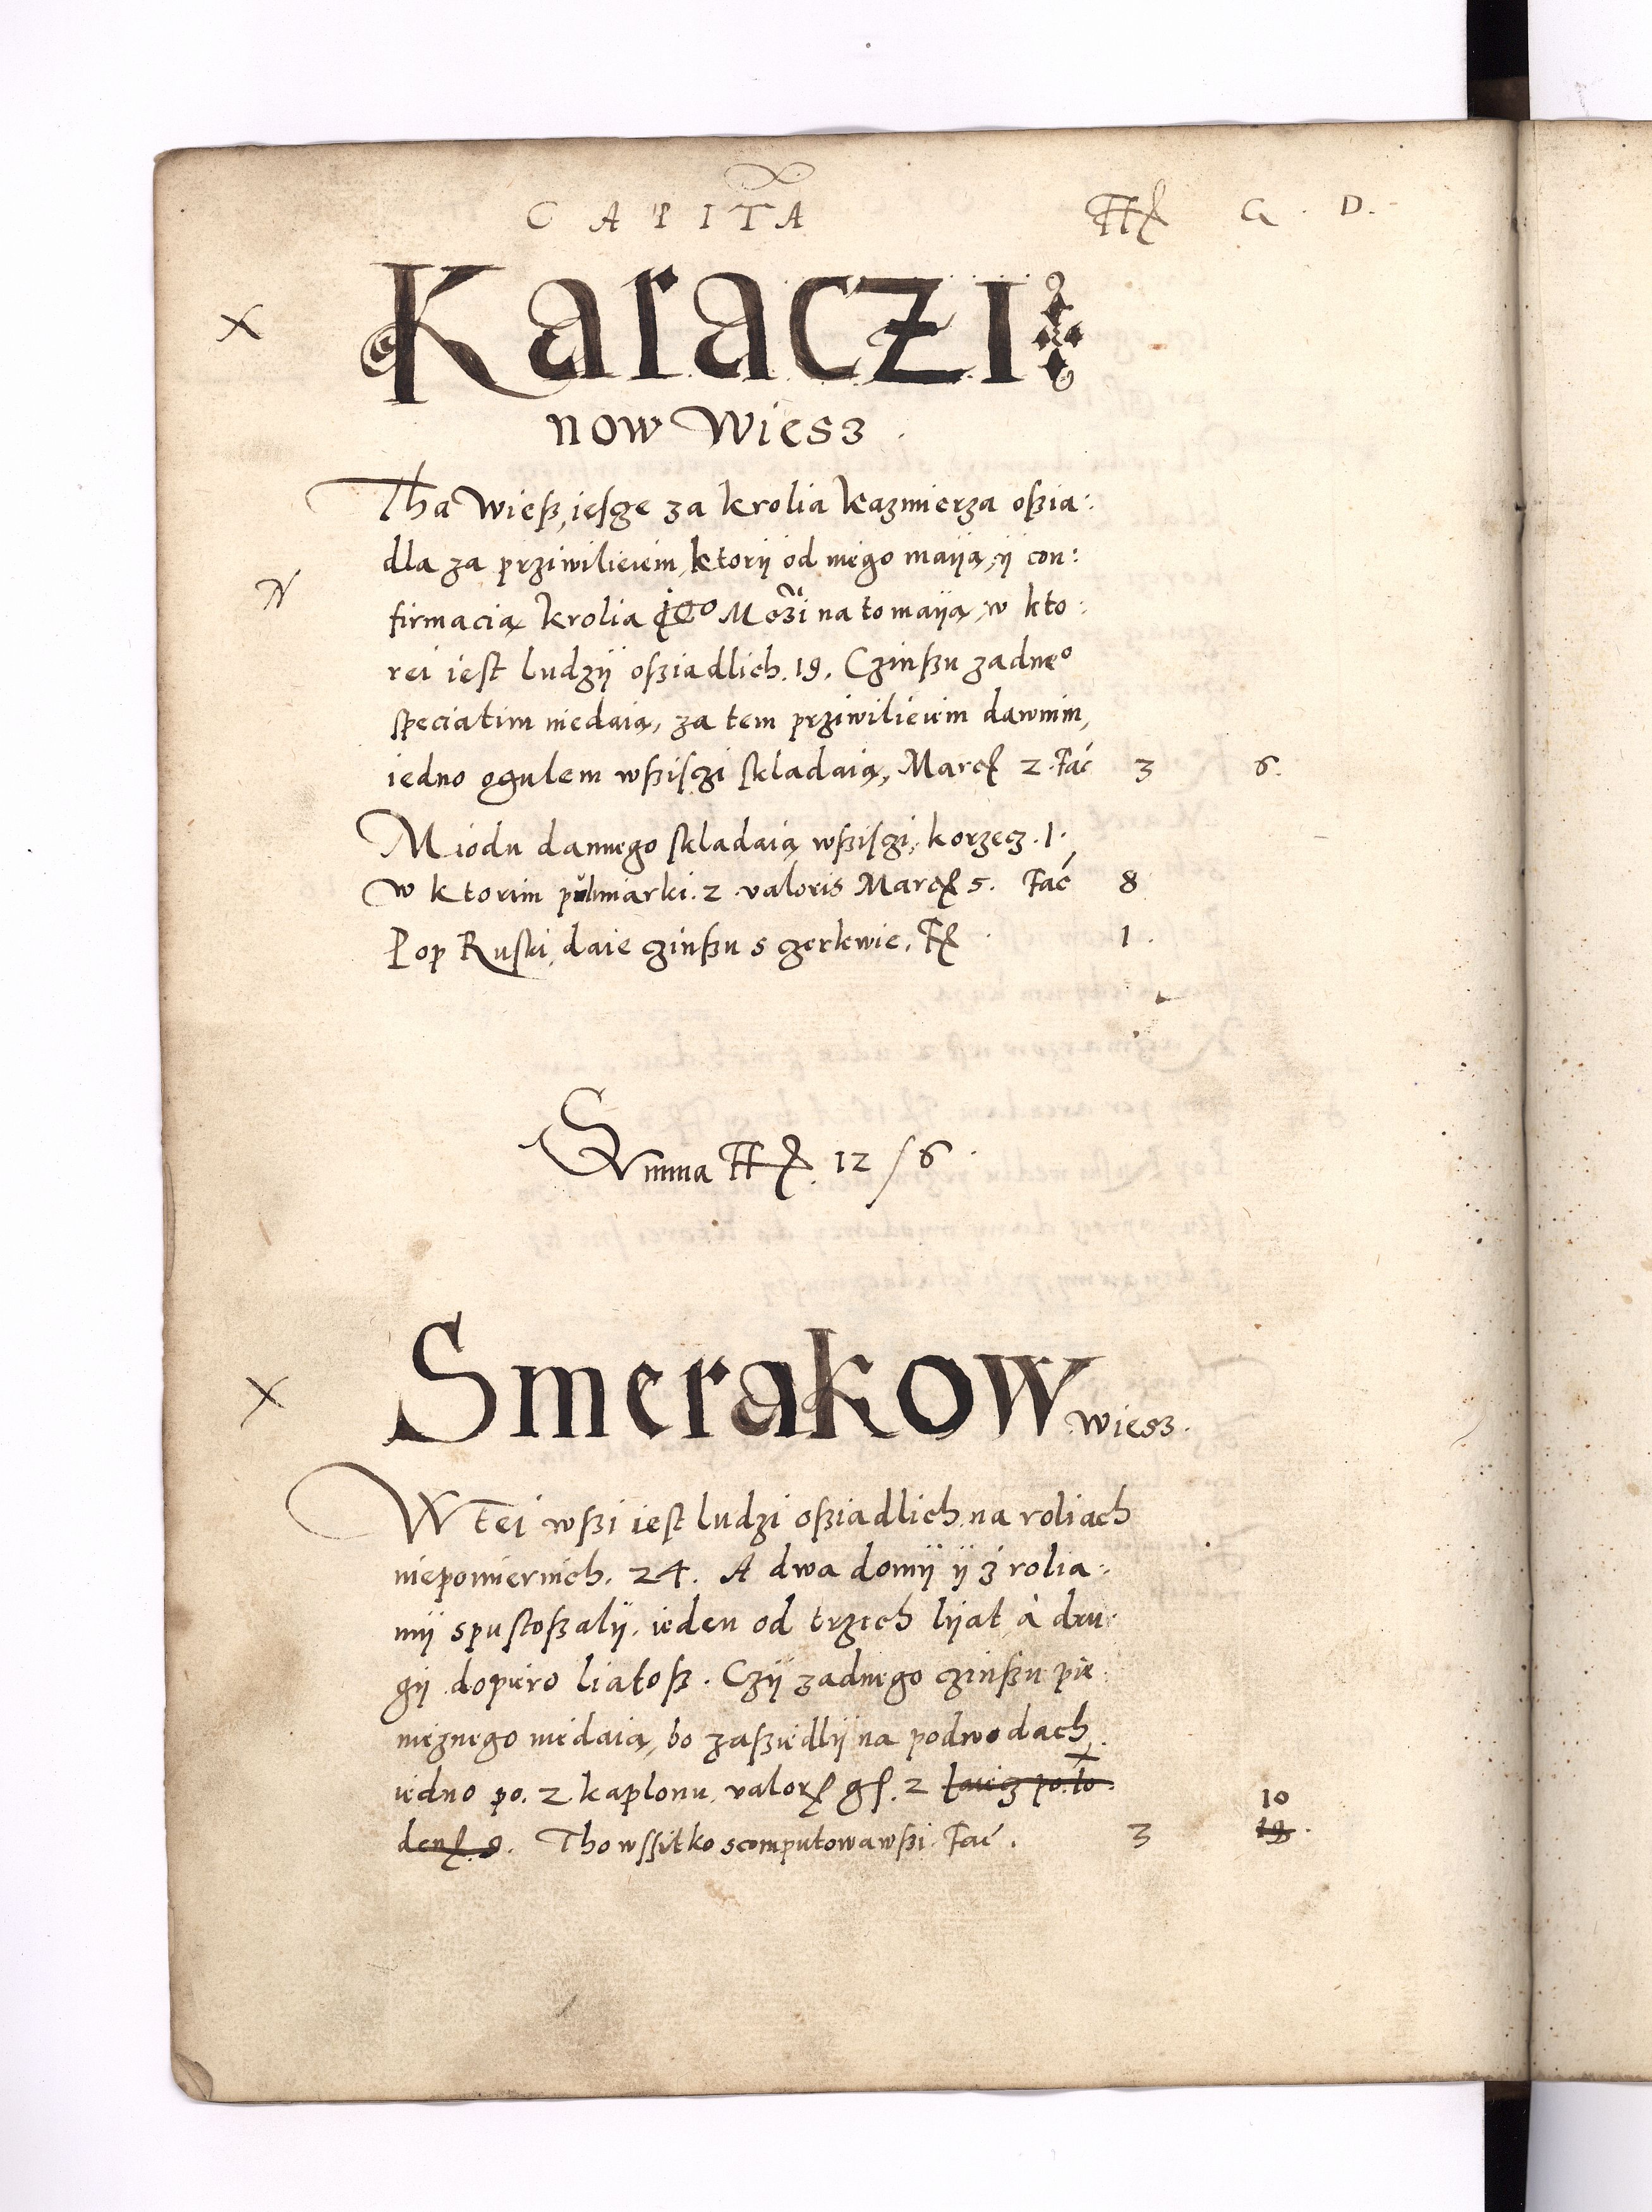 CAPITA Fl G. D.
x Karaczi
now Wiesz.
Tha Wieß, iesⱬcze za krolia kazmierza oßia:
dla za prziwilieiem, ktorÿ od niego maiją, ÿ con:
N firmacią krolia ieº Mozi na to maiją, w kto:
rei iest ludzÿ oßiadlich. 19. Czinßu zadneº
speciatim niedaią, za tem prziwilieiem dawnim,
iedno ogulem wßisczi skladaią, Marcͣ 2. Fac 3 6.
Miodu dannego skladaią wßisczi, korzecz. 1.
w ktorim pulmiarki. 2 valoris Marcͣ 5. Fac 8
Pop Ruski, daie czinßu s czerkwie. Fl 1.
Summa Fl. 12/6.
x Smerakow wiesz.
W tei wßi iest ludzi oßiadlich na roliach
niepomiernich. 24. A dwa domÿ ÿ z rolia:
mÿ spustoßalÿ. ieden od trzech lijat, à dru
gÿ dopiero liatoß. Czÿ zadnego czinßu pie
nieznego niedaią, bo zaßiedlÿ na podwodach
iedno po. 2 kaplonu, valor gr. 2 po. to 10
den. 9. Tho wssitko scomputowawßi. Fac. 3 18.